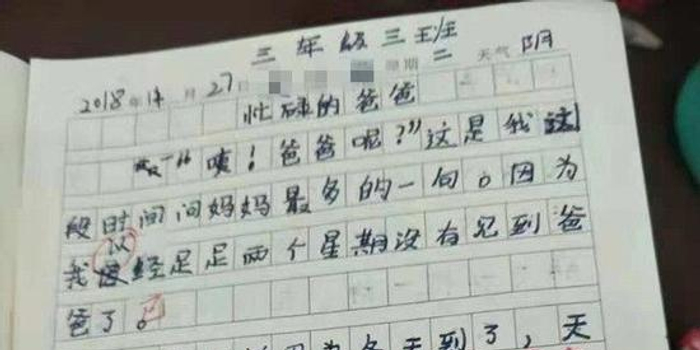 三年级三班
2018年11月27日 星期二 天气阴
忙碌的爸爸
“咦！爸爸呢？”这是我这
段时间问妈妈最多的一句。因为
我以经足足两个星期没有见到爸
爸了。
因为冬天到了，天